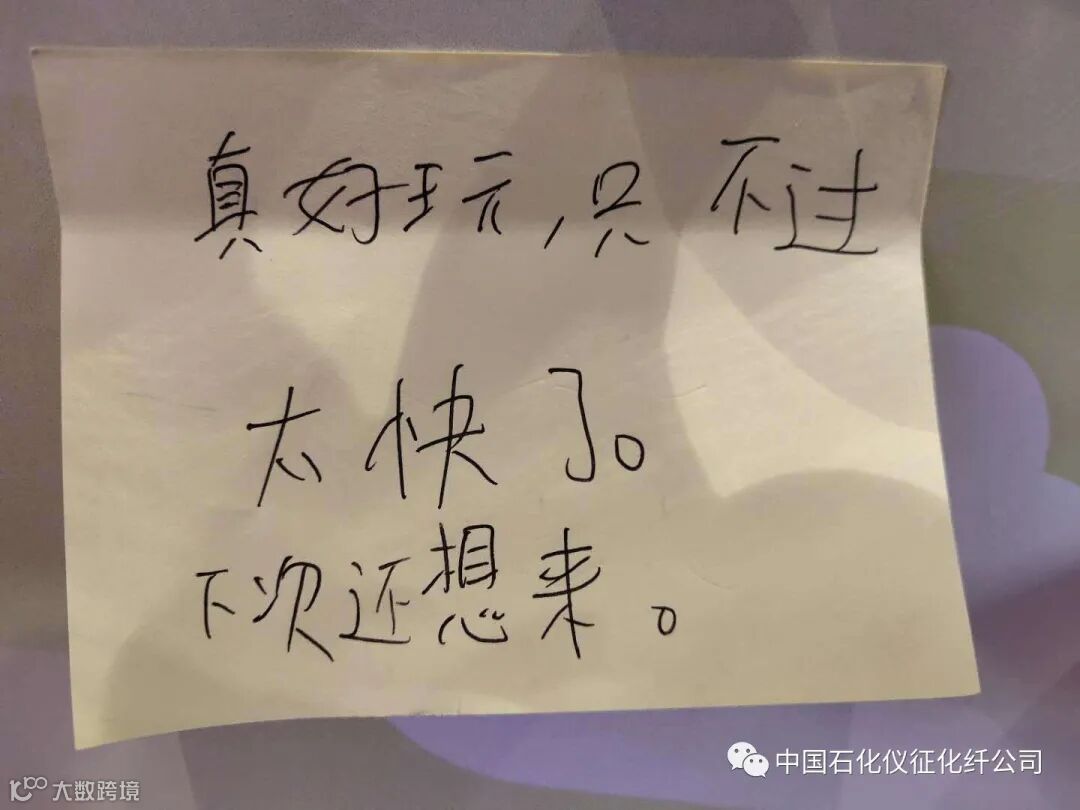 真好玩,只不过
太快了。
下次还想来。
中国石化仪征化纤公司
大数跨境